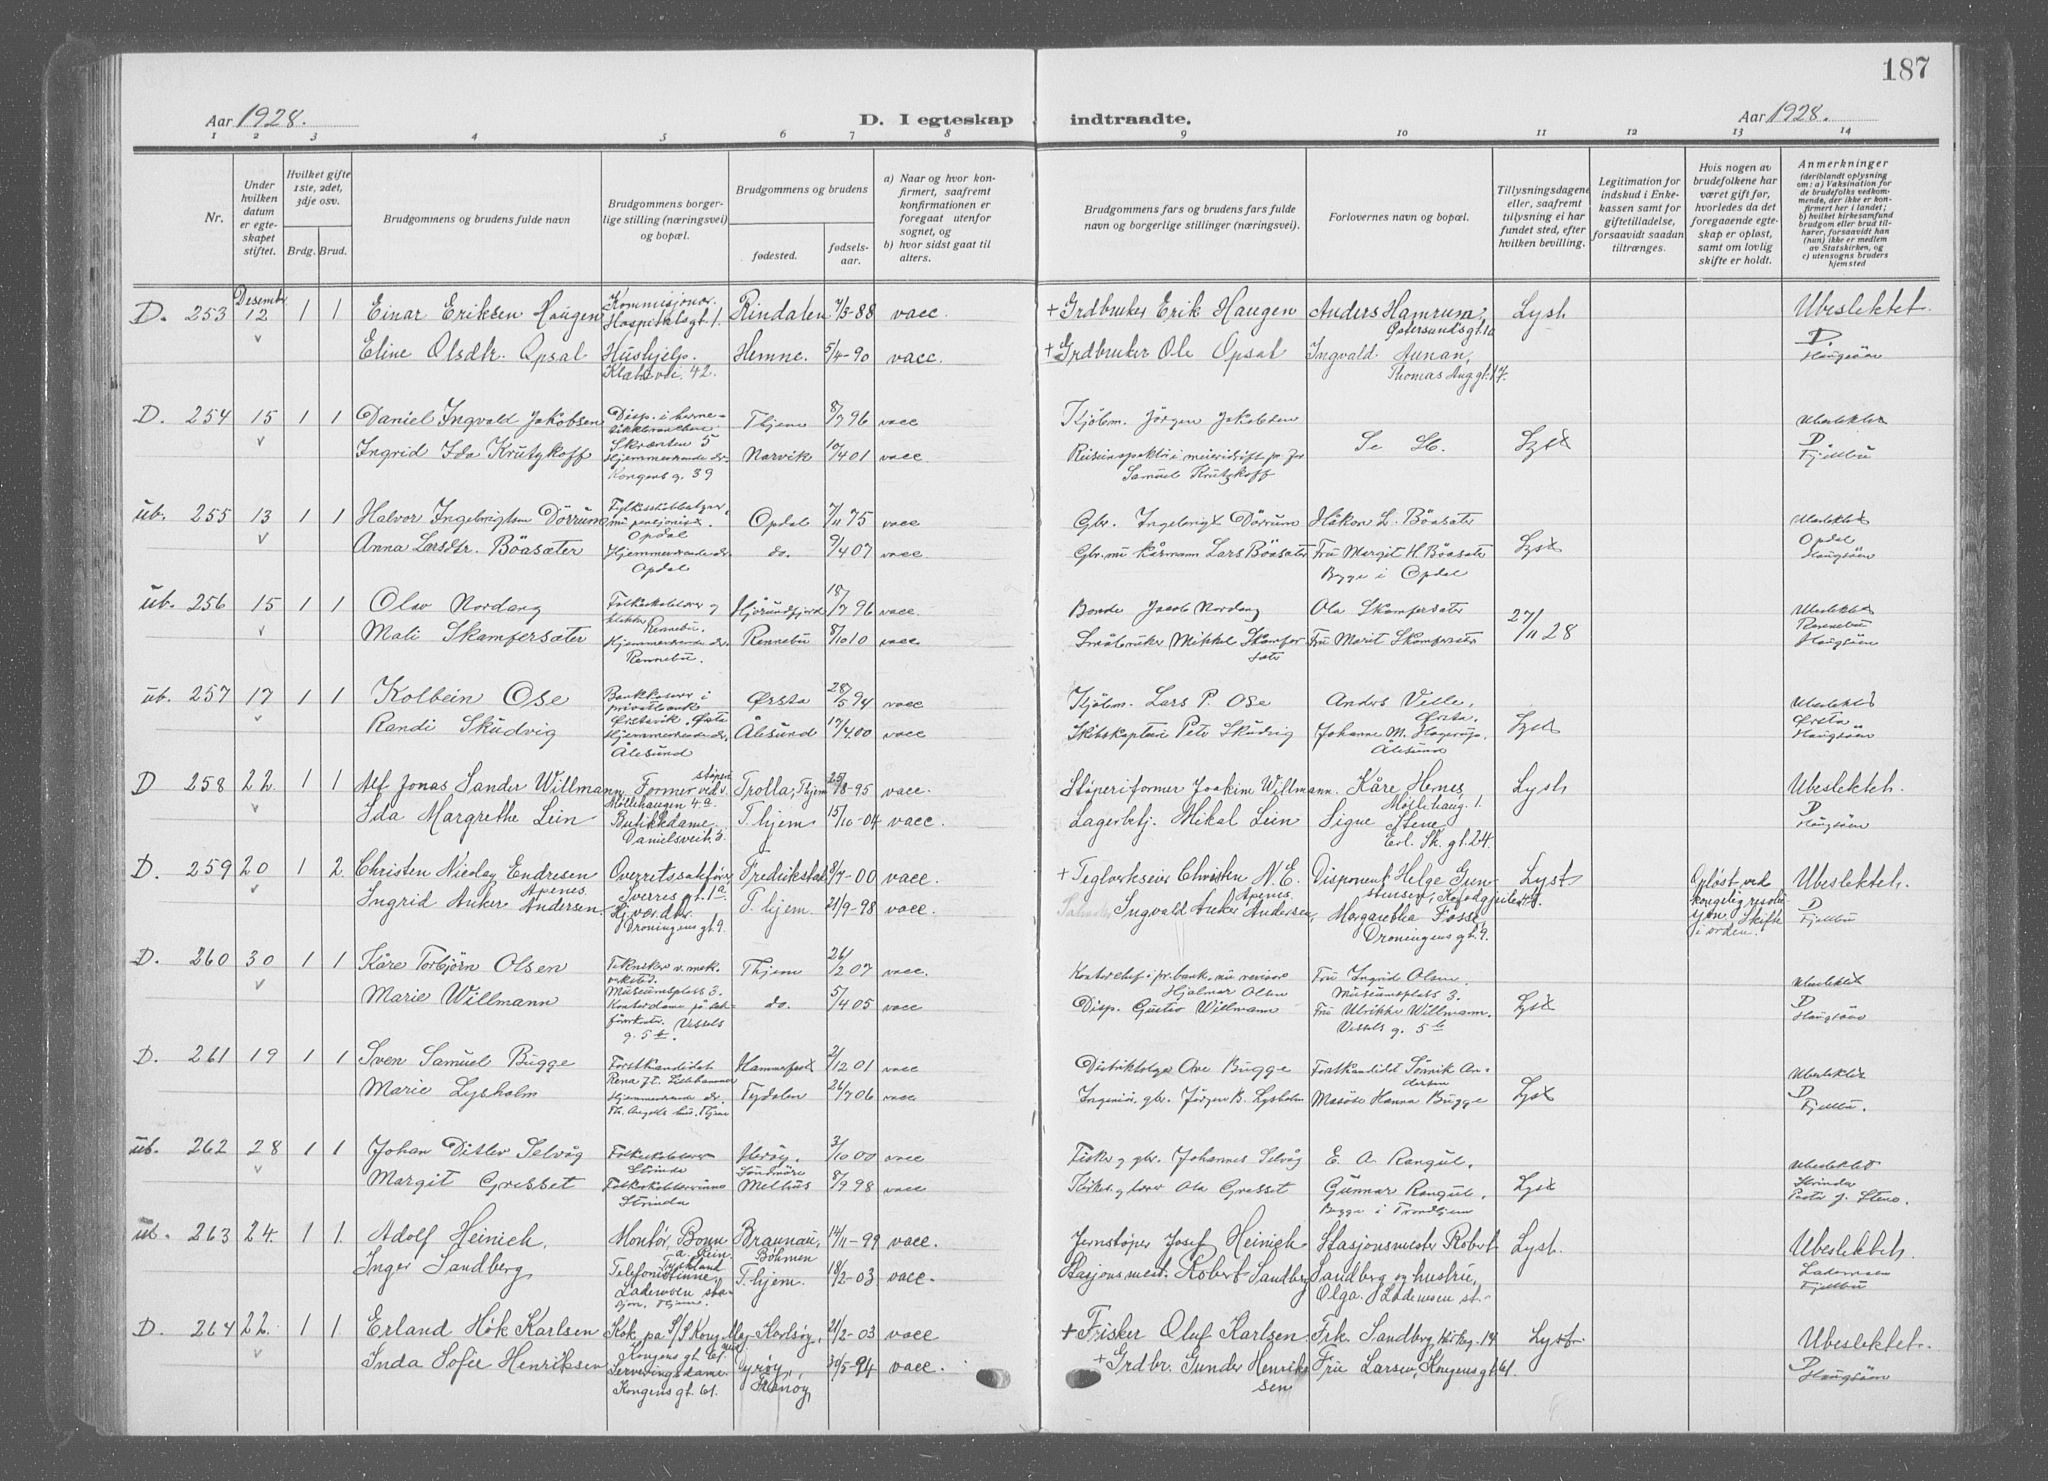 187
Aar 1928.
D. I egteskap indtraadte.
Aar 1928.
1 2 3 4 5 6 7 8 9 10 11 12 13 14
Nr.
Under hvilken datum er egteskapet stiftet.
Hvilket gifte 1ste, 2det, 3dje osv.
Brdg. Brud.
Brudgommens og brudens fulde navn
Brudgommens borgerlige stilling (næringsvei) og bopæl.
Brudgommens og brudens
fødested.
fødselsaar.
a) Naar og hvor konfirmert, saafremt konfirmationen er foregaat utenfor sognet, og
b) hvor sidst gaat til alters.
Brudgommens fars og brudens fars fulde navn og borgerlige stillinger (næringsvei).
Forlovernes navn og bopæl.
Tillysningsdagene eller, saafremt tillysning ei har fundet sted, efter hvilken bevilling.
Legitimation for indskud i Enkekassen samt for giftertilladelse, forsaavidt saadan tiltrænges.
Hvis nogen av brudefolkene har været gift før, hvorledes da det foregaaende egteskap er opløst, samt om lovlig skifte er holdt.
Anmerkninger
(deriblandt oplysning om: a) Vaksination for de brudefolks vedkommende, der ikke er konfirmert her i landet; b) hvilket kirkesamfund brudgom eller brud tilhører, forsaavidt han (hun) ikke er medlem av Statskirken, og c) utensogns bruders hjemsted
D. 253 Desember 12 1 1 Einar Eriksen Haugen Kommisjonær Hospitalsgt 1. Rindalen 7/5-88 vacc + Grdbruker Erik Haugen Anders Hamrum, Østersundsgt. 10 Lyst Ubeslektet.
Eline Olsdtr. Opsal Hushjelp. 42. Hemne. 5/4-90 vacc. + Grdbruker Ole Opsal Ingvald Aunan, Thomas Ang gt. 17. D. Haugsöen
D. 254 15 1 1 Daniel Ingvald Jakobsen Disp. i Skrænten 5 Thjem 8/7 96 vacc Kjölm. Jörgen Jakobsen Se Lyst Ubeslektet
Ingrid Ida Krutzkoff Hjemmeværende dr. Kongens g. 39 Narvik 10/4 01 vacc. Samuel Krutzkoff D Fjellbu
ub. 255 13 1 1 Halvor Ingebrigtsen Dörrum nu pensjonist. Opdal Opdal 7/11 75 vacc Gbr. Ingebrigt Dörrum Håkon L. Böasæter Ubeslektet
Anna Larsdtr. Böasæter Hjemmeværende dr. Opdal do. 9/4 07 vacc. Gbr. nu kårmann Lars Böasæter Fru Margit H. Böasæter Begge i Opdal Lyst Opdal Haugsöen
ub. 256 15 1 1 Olav Nordang Folkeskolelærer og klokker Rennebu. Hjörundfjord 18/7 96 vacc Bonde Jacob Nordang Ola Skamfersæter 27/11 28 Ubeslektet
Mali Skamfersæter Hjemmeværende dr. Rennebu. Rennebu 8/10 10 vacc Småbruker Mikkel Skamfersæter Fru Marit Skamfersæter Rennebu Haugsöen
ub. 257 17 1 1 Kolbein Ose Bankkasser i privatbank Ørstavik. Ørsta Ørsta 28/5 94 vacc Kjölm. Lars P. Ose Anders Velle, Ørsta. Ubeslektet
Randi Skudvig Hjemmeværende dr. Ålesund Ålesund 17/4.00 vacc Skibskaptein Petr Skudvig Johanne M. Hagerup, Ålesund Lyst Ørsta Haugsöen
D 258 22. 1 1 Alf Jonas Sander Willmann Former ved støperi Möllehaugen 4 a Trolla, Thjem 25/8-95 vacc. Støperiformer Joakim Willmann. Kåre Hernes, Møllehaug. 1. Lyst Ubeslektet.
Ida Margrethe Lein Butikkdame. Danielsveit. 3. T. hjem 15/10-04 vacc. Lagerbetj. Mikal Lein Signe Stene Erl. Sk. gt. 24. D Haugsöen
D. 259 20 1 2 Christen Nicolay Endresen Apenes Overretssakfører, Sverres gt. 1 a Fredrikstad 8/7-00 vacc. + Teglverkseier Christen N. E. Apenes. Disponent Helge Gunstensen, Lyst Opløst ved kongelig resolusjon. Skifte i orden. Ubeslektet.
Ingrid Anker Andersen. Hj. vær. dtr. Dronningens gt. 9. T. hjem. 21/9-98 vacc. Ingvald Anker Andersen, Margarethe Fosse, Dronningens gt. 9. D Fjellbu
D. 260 30 1 1 Kåre Torbjörn Olsen Tekniker v. mek. verksted. Museumsplass 3. Thjem 26/2 07 vacc. Kontorchef i pr. bank. nu revisor Hjalmar Olsen Fru Ingrid Olsen Museumsplass 3. Ubeslektet
Marie Willmann Kontordame på Vessels g. 5 b. do. 5/4 05 vacc Disp. Gustav Willmann Fru Ulrikke Willmann. Vessels g. 5 b Lyst D Haugsöen
D. 261 19 1 1 Sven Samuel Bugge Forstkandidat Rena Hammerfest 2/12 01 vacc Distriktslæge Ove Bugge Forstkandidat Sönnik Andersen Ubeslektet
Marie Lysholm Hjemmeværende dr. Tydalen 26/7 06 vacc Ingeniör, gbr. Jörgen B. Lysholm Hanna Bugge Lyst D. Fjellbu.
ub. 262 28 1 1 Johan Ditlev Selvåg Folkeskolelærer Strinda Heröy, Söndmöre 3/10 00 vacc Fisker og gbr. Johannes Selvåg E. A. Rangul. Ubeslektet
Margit Gresset Folkeskolelærerinne Strinda Melhus 8/9 98 vacc Ola Gresset Gunnar Rangul. Begge i Trondhjem Lyst Strinda Pastor J. Steno.
ub. 263 24. 1 1. Adolf Heinich. Montør, Bonn a. Rein. Tyskland Braunau, Böhmen 14/11-99 vacc. Jernstøper Josef Heinich Stasjonsmester Robert Lyst. Ubeslektet.
Inger Sandberg Telefonistinne, Lademoen stasjon, Thjem. T. hjem. 18/2-03 vacc. Stasjonsmest. Robert Sandberg Sandberg og hustru, Olga. Lademoen st. Lademoen Fjellbu
D. 264 22. 1 1. Erland Høk Karlsen Kok på S/S Kong Kongens gt. 61. Karlsøy, 21/2-03 vacc + Fisker Oluf Karlsen. Frk. Sandberg, 14 Lyst. Ubeslektet.
Inda Sofie Henriksen Serveringsdame. Kongens gt. 61. 30/5-94 vacc. + Grdbr. Gunder Henriksen Fru Larsen, Kongens gt 61. D Haugsöen